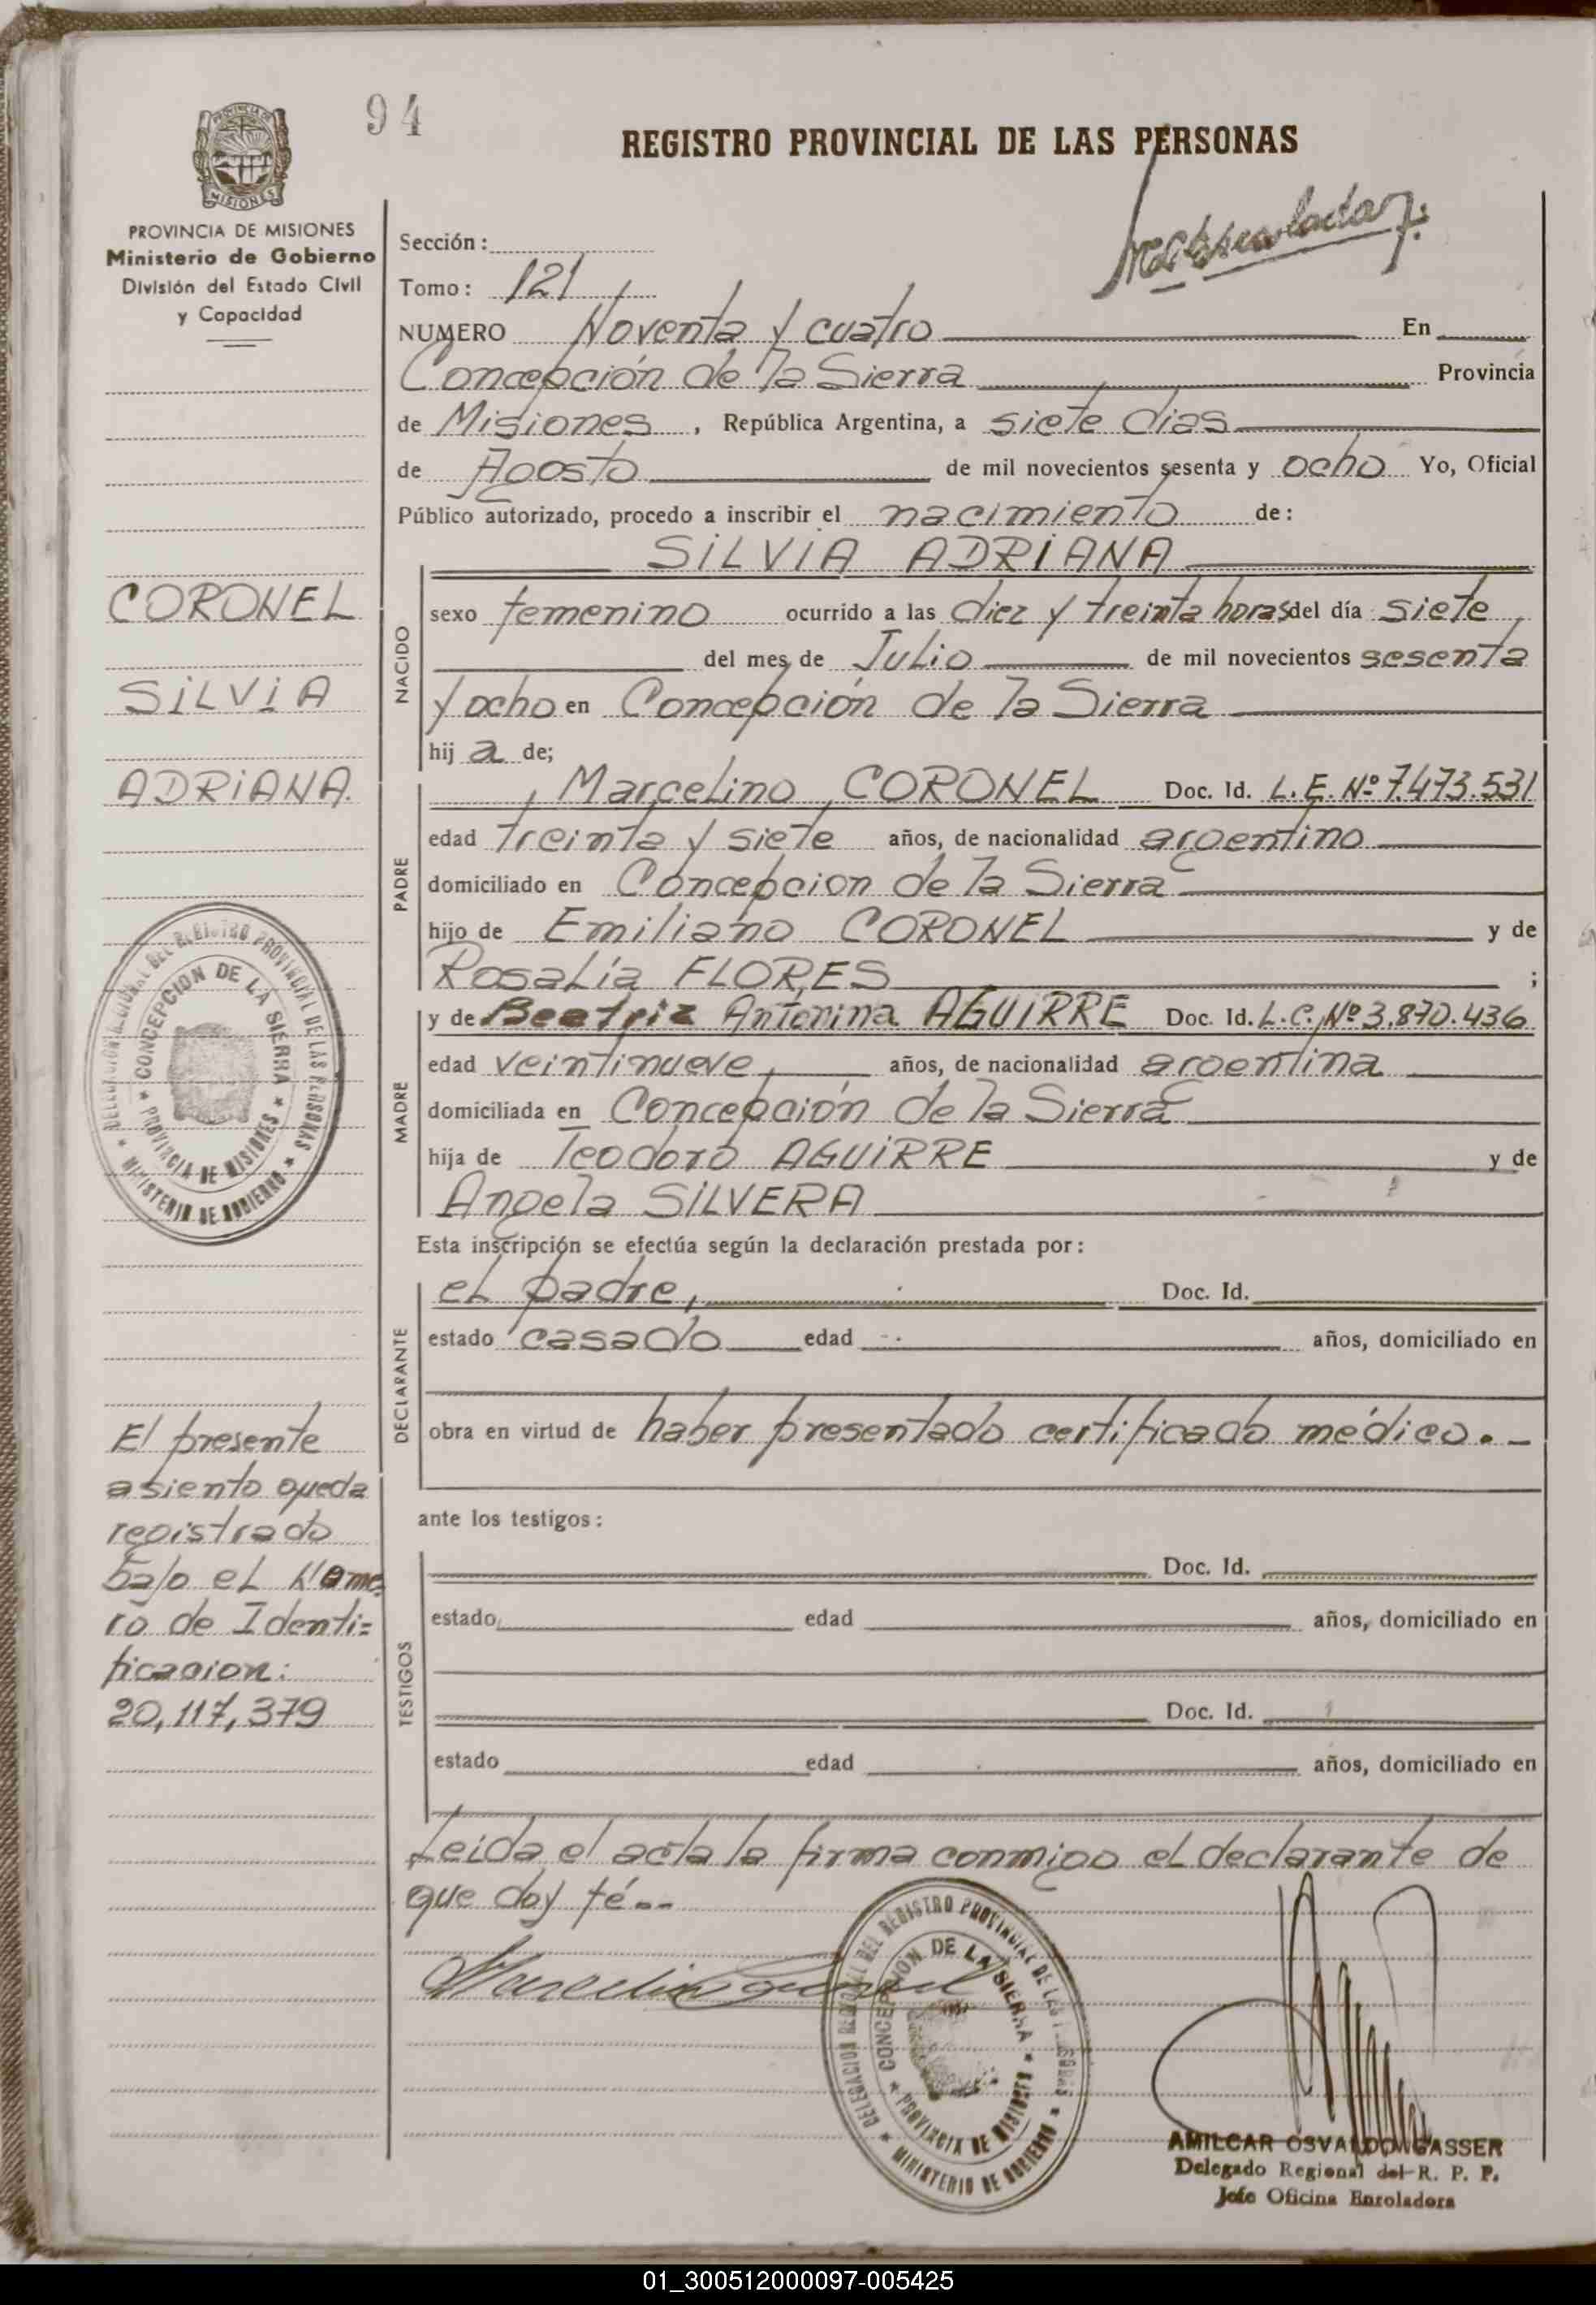 94
REGISTRO PROVINCIAL DE LAS PERSONAS
PROVINCIA DE MISIONES
MISIONES
PROVINCIA DE MISIONES
Ministerio de Gobierno
División del Estado Civil
y Capacidad
CORONEL
SILVIA
ADRIANA.
DELEGACION REGIONAL DEL REGISTRO PROVINCIAL DE LAS PERSONAS
CONCEPCION DE LA SIERRA
PROVINCIA DE MISIONES
MINISTERIO DE GOBIERNO
El presente
asiento queda
registrado
bajo el Nume
ro de Identi=
ficacion:
20,117,379
Sección:
Tomo: 121
NUMERO Noventa y cuatro En
Concepción de la Sierra Provincia
de Misiones, República Argentina, a siete dias
de Agosto de mil novecientos sesenta y ocho Yo, Oficial
Público autorizado, procedo a inscribir el nacimiento de:
SILVIA ADRIANA
NACIDO
sexo femenino ocurrido a las diez y treinta horas del día siete
del mes de Julio de mil novecientos sesenta
y ocho en Concepción de la Sierra
hij a de;
PADRE
Marcelino CORONEL Doc. Id. L.E. Nº 7.473.531
edad treinta y siete años, de nacionalidad argentino
domiciliado en Concepcion de la Sierra
hijo de Emiliano CORONEL y de
Rosalía FLORES ;
MADRE
y de Beatriz Antonina AGUIRRE Doc. Id. L.C. Nº 3.870.436
edad veintinueve, años, de nacionalidad argentina
domiciliada en Concepción de la Sierra
hija de Teodoro AGUIRRE y de
Angela SILVERA
Esta inscripción se efectúa según la declaración prestada por:
DECLARANTE
el padre, Doc. Id.
estado casado edad años, domiciliado en
obra en virtud de haber presentado certificado médico.-
ante los testigos:
TESTIGOS
Doc. Id.
estado edad años, domiciliado en
Doc. Id.
estado edad años, domiciliado en
Leida el acta la firma conmigo el declarante de
que doy fé.--
Marcelino Coronel
DELEGACION REGIONAL DEL REGISTRO PROVINCIAL DE LAS PERSONAS
CONCEPCION DE LA SIERRA
PROVINCIA DE MISIONES
MINISTERIO DE GOBIERNO
AMILCAR OSVALDO GASSER
Delegado Regional del R. P. P.
Jefe Oficina Enroladora
01_300512000097-005425